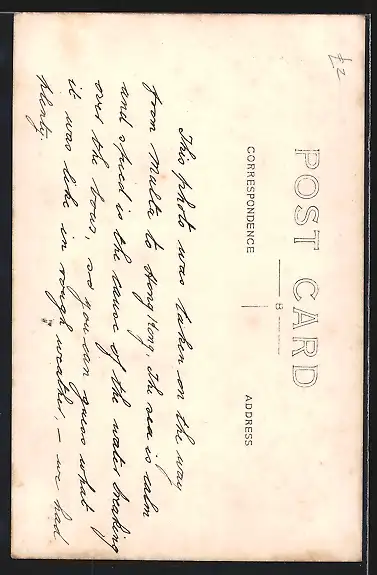 £2
POST CARD
CORRESPONDENCE
ADDRESS
This photo was taken on the way
from Malta to Hong Kong. The sea is calm
and speed is the cause of the water breaking
over the bows, so you can guess what
it was like in rough weather, – we had
plenty.